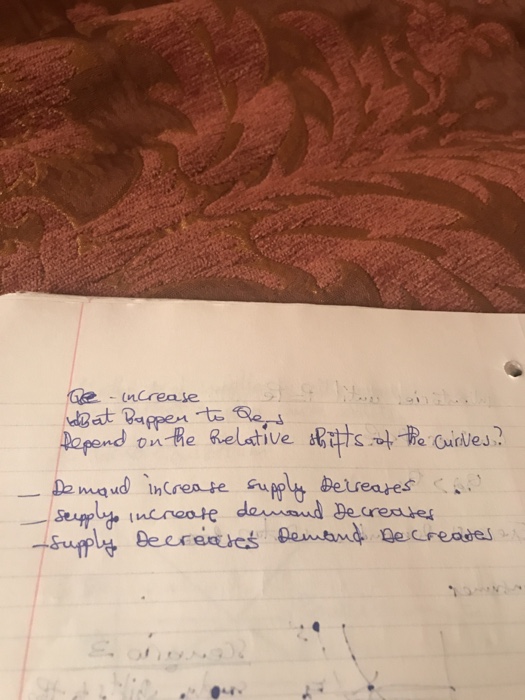 Qe - increase
What Happen to Qe,
Depend on the Relative shifts of the curves?
— Demand increase supply Decreases
— supply increase demand Decreases
- Supply Decreases Demand Decreases